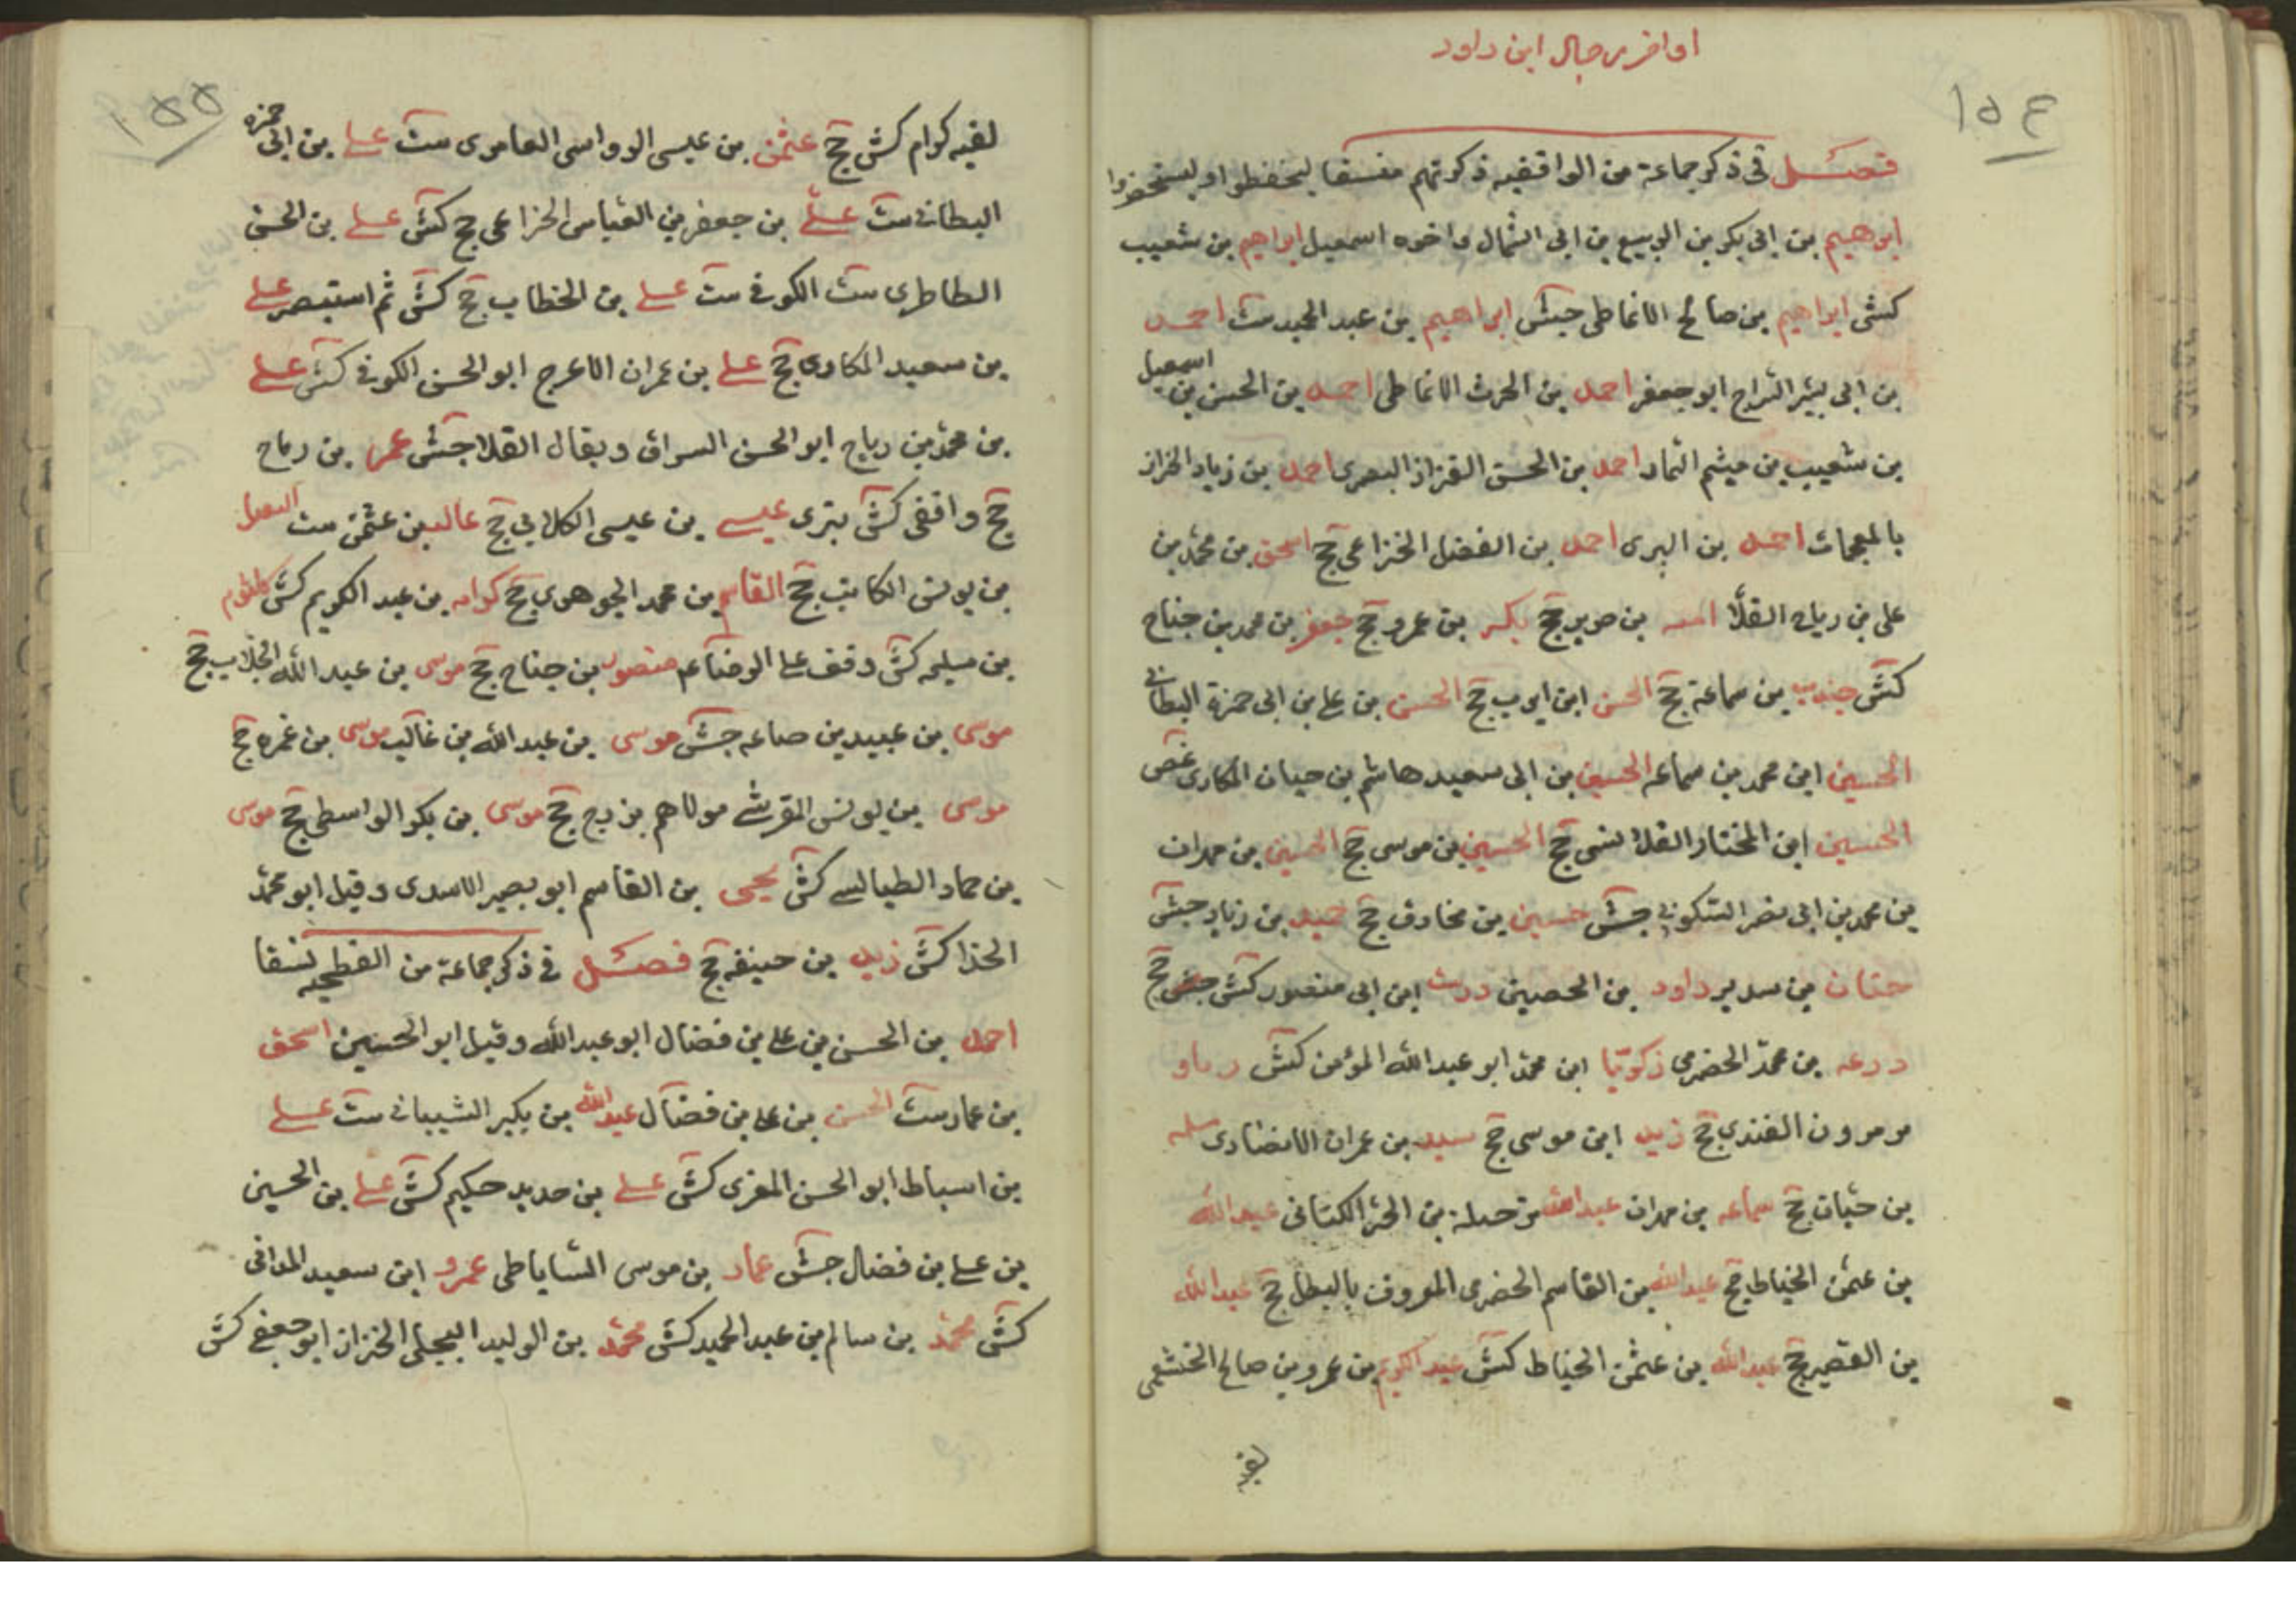 اواخر رجال ابن داود
١٥٤
فصل في ذكر جماعة من الواقفيه ذكرتهم منسقا ليحفظوا وليستحضروا
ابرهيم بن ابي بكر بن الربيع بن ابي السمال واخوه اسمعيل ابراهيم بن شعيب
كش ابراهيم بن صالح الانماطي جش ابراهيم بن عبد الحميد ست احمد
بن ابي بشر السراج ابو جعفر احمد بن الحرث الانماطي احمد بن الحسن بن اسمعيل
بن شعيب بن ميثم التمار احمد بن الحسن القزاز البصري احمد بن زياد الخزاز
بالمعجمات احمد بن السري احمد بن الفضل الخزاعي جخ اسحق بن محمد بن
علي بن رباح القلا اميه بن جخ بكر بن عمرو جخ جعفر بن محمد بن جناح
كش جندب بن سماعة جخ الحسن ابن ايوب جخ الحسن بن علي بن ابي حمزة البطائني
الحسين ابن محمد بن سماعه الحسين بن ابي سعيد هاشم بن حيان المكاري غض
الحسين ابن المختار القلانسي جخ الحسين بن موسى جخ الحسين بن مهران
بن محمد بن ابي نصر السكوني جش حسين بن مخارق جخ حميد بن زياد جش
حنان بن سدير داود بن الحصين درست ابن ابي منصور كش جش جخ
درعه بن محمد الحضرمي زكريا ابن محمد ابو عبد الله المؤمن كش
مرون القندي جخ زيد ابن موسى جخ سعيد بن عمران الانصاري سلمه
بن حيان جخ سماعه بن مهران عبد الله بن جبلة بن الحر الكناني عبد الله
بن عثمن الخياط جخ عبد الله بن القاسم الحضرمي المعروف بالبطل جخ عبد الله
بن القصير جخ عبد الله بن عثمن الحناط كش عبد الكريم بن عمرو بن صالح الخثعمي
لقبه
١٥٥
لقبه كرام كش جخ عثمن بن عيسى الرواسي العامري ست علي بن ابي حمزه
البطائني ست علي بن جعفر بن العباس الخزاعي جخ كش علي بن الحسن
الطاطري ست الكوفي ست علي بن الخطاب جخ كش ثم استبصر علي
بن سعيد المكاري جخ علي بن عمران الاعرج ابو الحسن الكوفي كش علي
بن محمد بن رباح ابو الحسن السواق ويقال القلا جش عمر بن رباح
جخ واقفي كش بتري عيسى بن عيسى الكلابي جخ غالب بن عثمن ست الفضل
بن يونس الكاتب جخ القاسم بن محمد الجوهري جخ كرامه بن عبد الكريم كش كلثوم
بن سليم كش وقف على الرضا عم منصور بن جناح جخ موسى بن عبد الله الجلاب جخ
موسى بن عبيد بن صاعه جش موسى بن عبد الله بن غالب موسى بن عمره جخ
موسى بن يونس القرشي مولاهم بزرج جخ موسى بن بكر الواسطي جخ موسى
بن حماد الطيالسي كش يحيى بن القاسم ابو بصير الاسدي وقيل ابو محمد
الحذا كش زيد بن حنيفه جخ فصل في ذكر جماعة من الفطحيه نسقا
احمد بن الحسن بن علي بن فضال ابو عبد الله وقيل ابو الحسين اسحق
بن عمار ست الحسن بن علي بن فضال عبد الله بن بكير الشيباني ست علي
بن اسباط ابو الحسن المقري كش علي بن حديد حكيم كش علي بن الحسين
بن علي بن فضال جش عمار بن موسى الساباطي عمرو ابن سعيد المدائني
كش محمد بن سالم بن عبد الحميد كش محمد بن الوليد البجلي الخزاز ابو جعفر كش